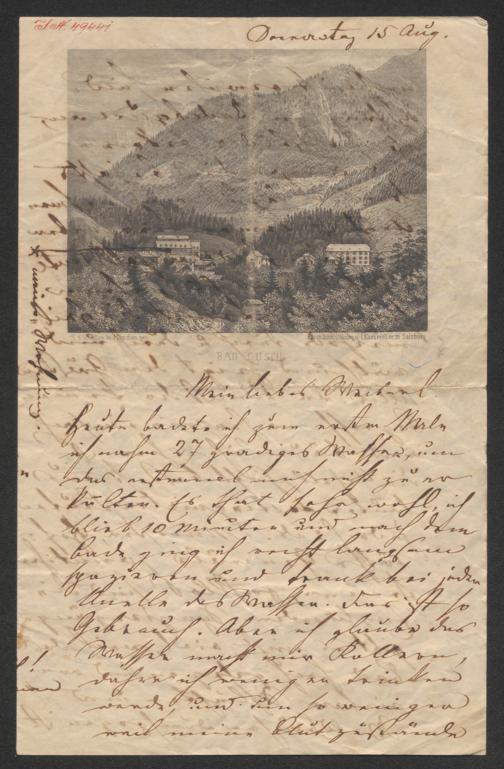 49441
Donnerstag 15 Aug.
BAD FUSCH
meine Wohnung.
Mein liebes Weiberl
Heute badete ich zum ersten Male
ich nahm 27 gradiges Wasser, um
das erstemal mich nicht zu er
kälten. Es that sehr wohl, ich
blieb 10 Minuten und nach dem
bade ging ich recht langsam
spazieren und trank bei jeder
Quelle das Wasser. Das ist so
Gebrauch. Aber ich glaube das
Wasser macht mir Kollern,
daher ich weniger trinken
werde, und um so weniger
weil meine Blutzustände